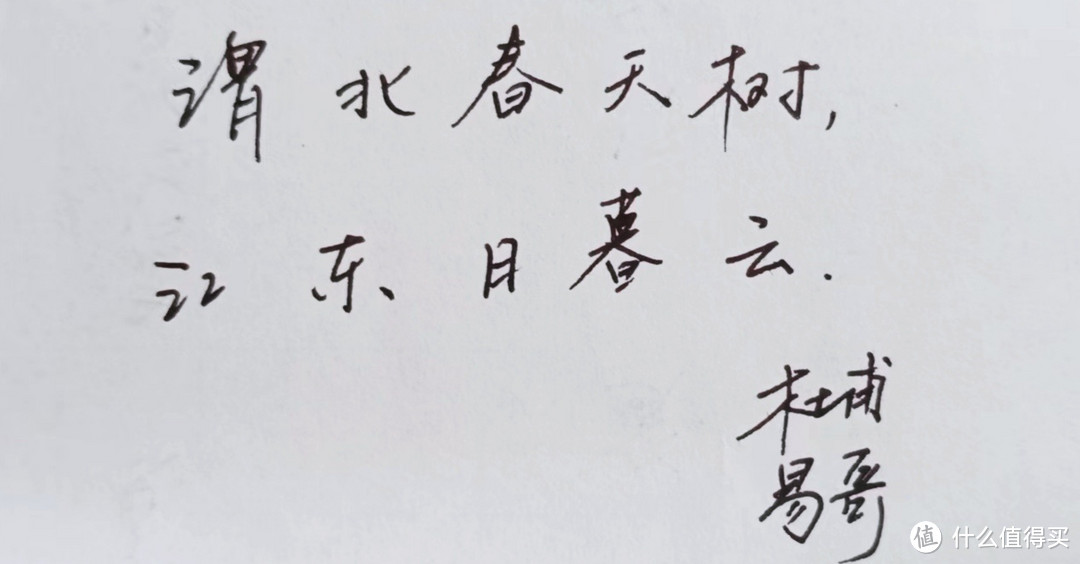 谓北春天树，
江东日暮云.
杜甫
易哥
值 什么值得买